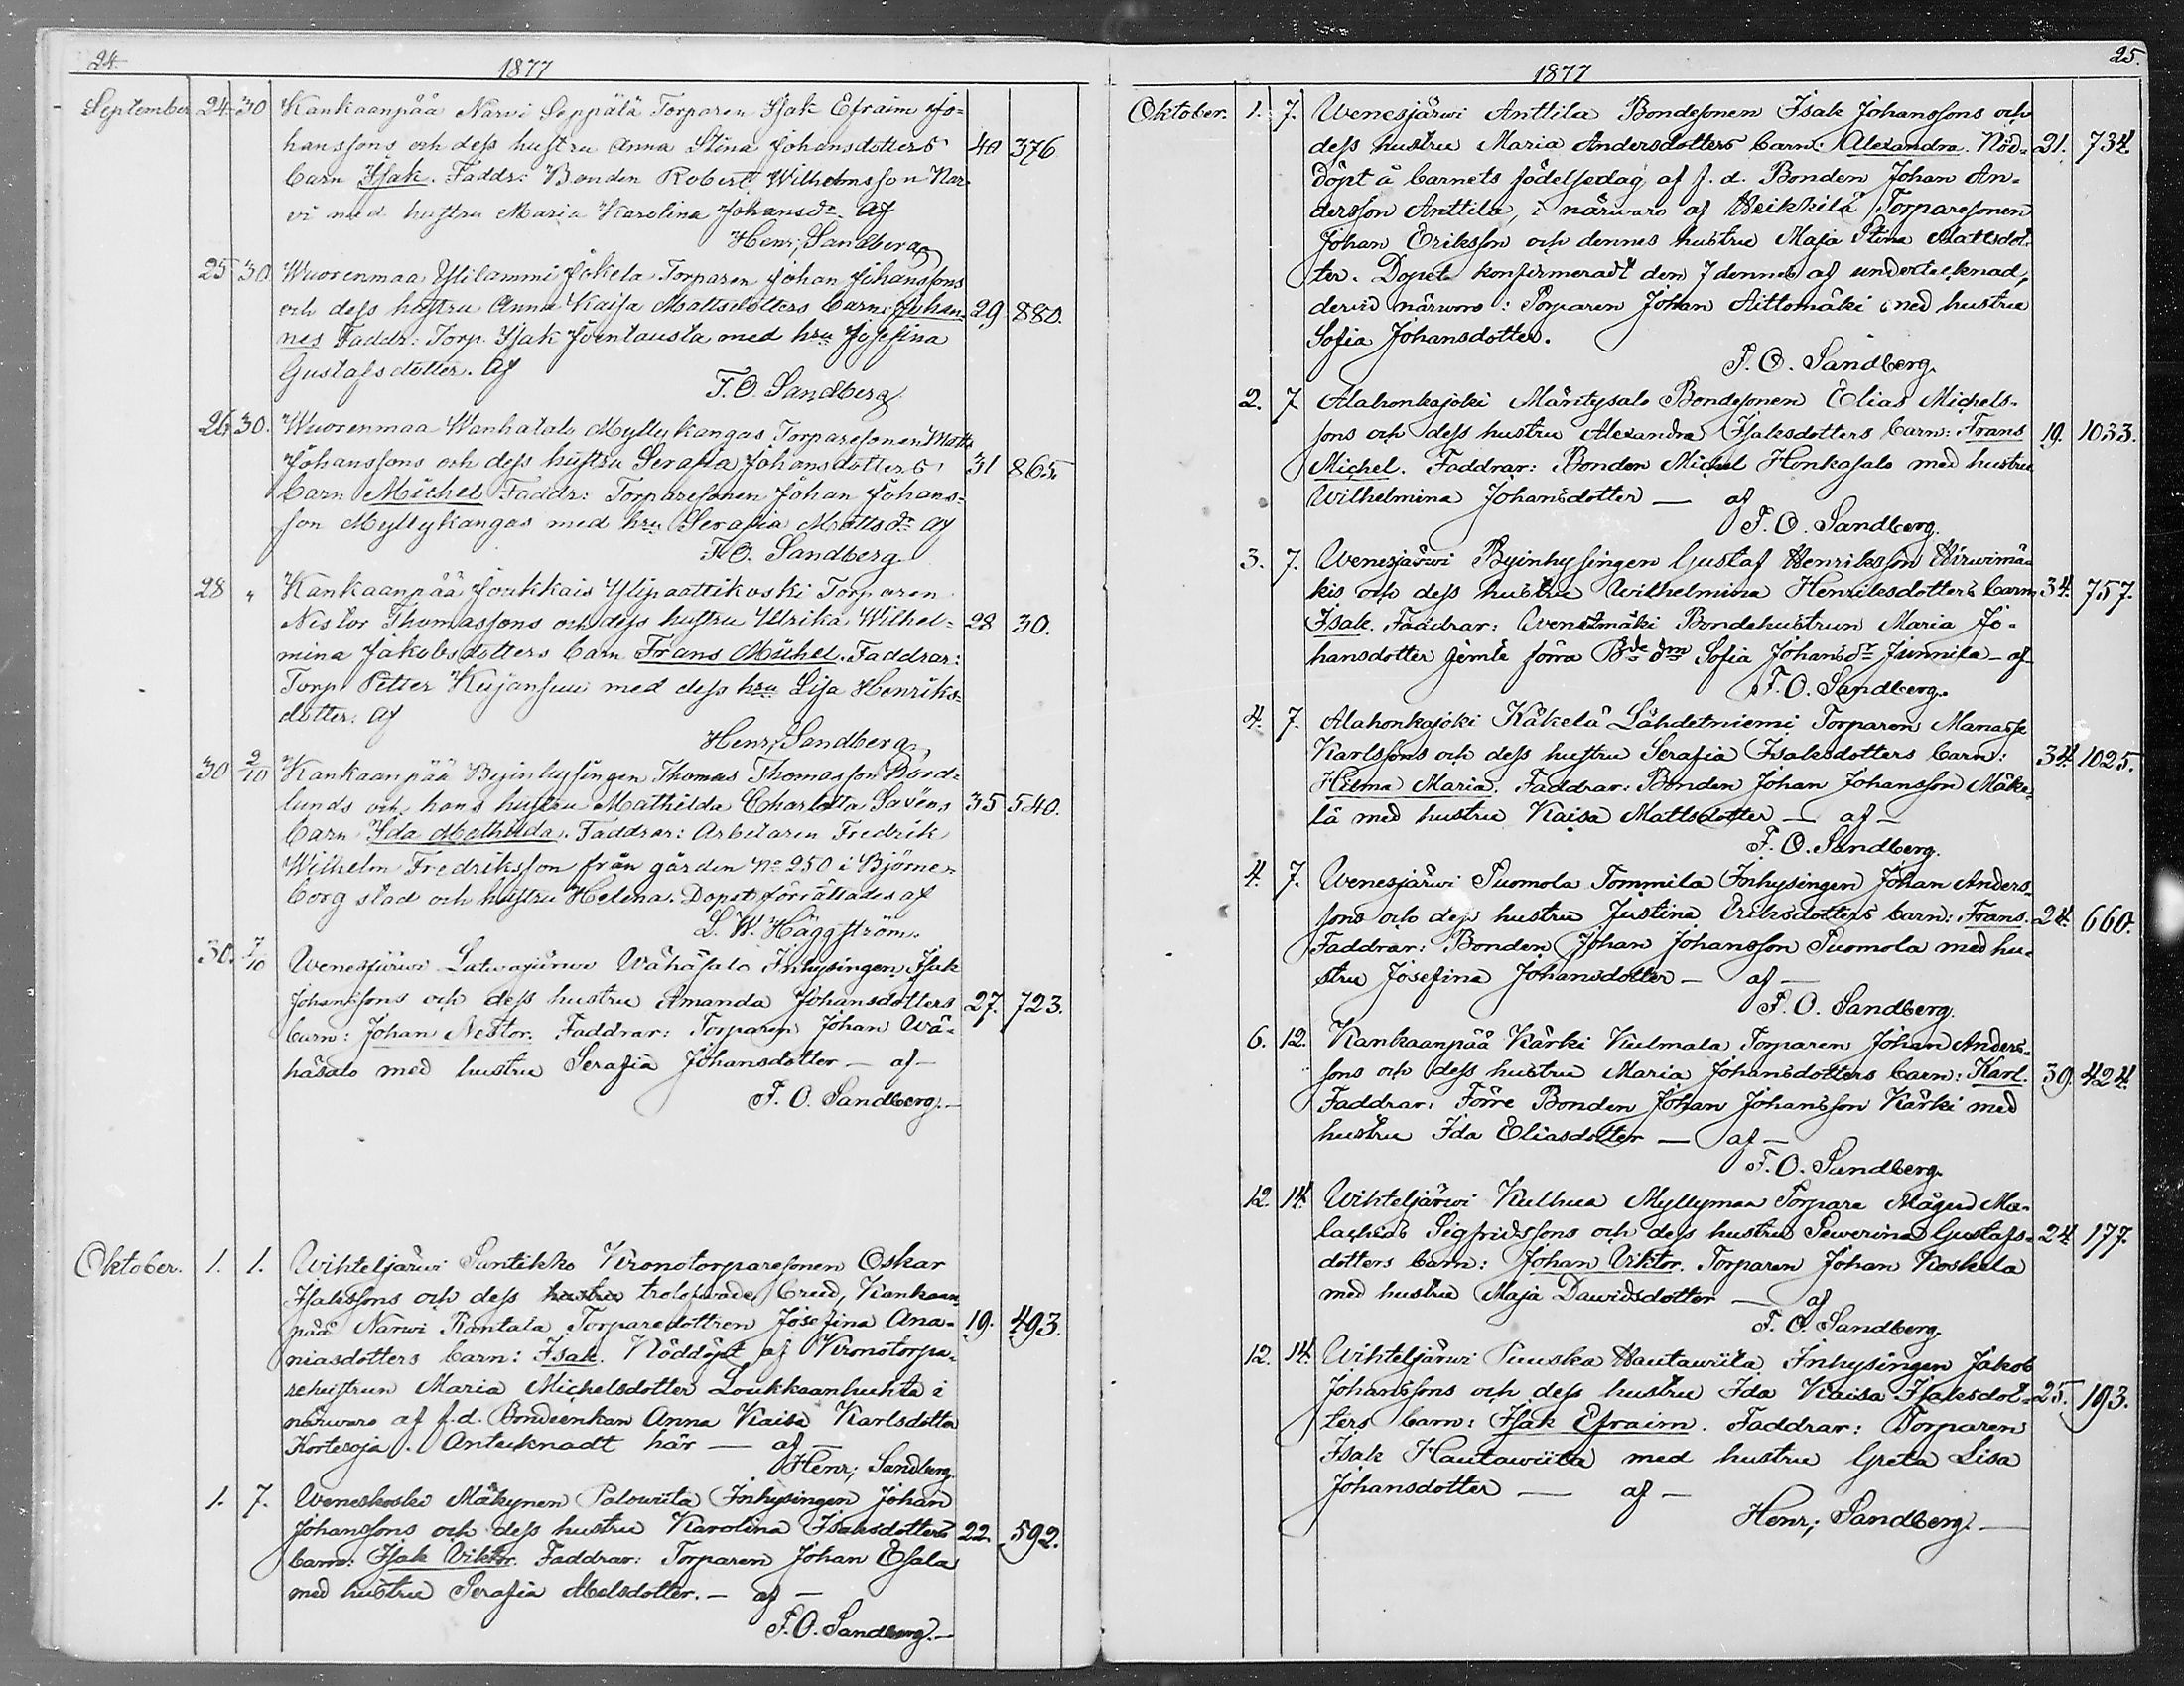 24.
1877
September 24 30 Kankaanpää Narvi Seppälä Torparen Isak Efraim Jo-
hanssons och dess hustru Anna Stina Johansdotters 40 376
barn Isak. Faddr: Bonden Robert Wilhelmsson Nar-
vi med hustru Maria Karolina Johansdr. Af
Henr; Sandberg
25 30 Wuorenmaa Ylilammi Jokela Torparen Johan Johanssons
och dess hustru Anna Kaisa Mattsdotters barn: Johan- 29 880.
nes Faddr: Torp. Isak Jöentausta med hru Josefina
Gustafsdotter. Af
F. O. Sandberg
26 30. Wuorenmaa Wanhatalo Myllykangas Torparesonen Matts
Johanssons och dess hustru Serafia Johansdotters 31 865.
barn Michel Faddr: Torparesonen Johan Johans-
son Myllykangas med hru Serafia Mattsdr af
F. O. Sandberg
28 " Kankaanpää Joukkais Ylipaattikoski Torparen
Nestor Thomassons och dess hustru Ulrika Wilhel- 28 30.
mina Jakobsdotters barn Frans Michel. Faddrar:
Torp. Petter Kujansuu med dess hru Lisa Henriks-
dotter. Af
Henr; Sandberg
30 2/10 Kankaanpää Byinhysingen Thomas Thomasson Nord-
lunds och hans hustru Mathilda Charlotta Savéns 35 540.
barn Ida Mathilda. Faddrar: Arbetaren Fredrik
Wilhelm Fredriksson från gården No 250 i Björne-
borg stad och hustru Helena. Dopet förrättades af
L. W. Häggström.
30. 7/10 Wenesjärwi Latwajärwi Wähäsalo Inhysingen Isak
Johanssons och dess hustru Amanda Johansdotters 27. 723.
barn: Johan Nestor. Faddrar: Torparen Johan Wä-
häsalo med hustru Serafia Johansdotter — af —
F. O. Sandberg. —
Oktober. 1. 1. Wihteljärwi Santikko Kronotorparesonen Oskar
Isakssons och dess hustru trolofvade Brud, Kankaan-
pää Narwi Rantala Torparedottren Josefina Ana- 19. 493.
niasdotters barn: Isak. Nöddöpt af Kronotorpa-
rehustrun Maria Michelsdotter Loukkaanhuhta i
närwaro af f.d. Bondeenkan Anna Kaisa Karlsdotter
Korteoja. Antecknadt här — af —
Henr; Sandberg.
1. 7. Weneskoski Mäkynen Palowiita Inhysingen Johan
Johanssons och dess hustru Karolina Isaksdotters 22. 592.
barn: Isak Viktor. Faddrar: Torparen Johan Esala
med hustru Serafia Abelsdotter. — af —
F. O. Sandberg. —
25.
1877
Oktober. 1. 7. Wenesjärwi Anttila Bondesonen Isak Johanssons och
dess hustru Maria Andersdotters barn: Alexandra. Nöd- 21. 734.
döpt å barnets födelsedag af f. d. Bonden Johan An-
dersson Anttila, i närwaro af Heikkilä Torparesonen
Johan Eriksson och dennes hustru Maja Stina Mattsdot-
ter. Dopet konfirmeradt den 7 dennes af undertecknad,
dervid närworo: Torparen Johan Aittomäki med hustru
Sofia Johansdotter.
F. O. Sandberg.
2. 7. Alahonkajoki Mäntysalo Bondesonen Elias Michels-
sons och dess hustru Alexandra Isaksdotters barn: Frans 19. 1033.
Michel. Faddrar: Bonden Michel Honkasalo med hustru
Wilhelmina Johansdotter — af
F. O. Sandberg.
3. 7. Wenesjärwi Byinhysingen Gustaf Henriksson Hirwimä-
kis och dess hustru Wilhelmina Henriksdotters barn 34. 757.
Isak. Faddrar: Wenetmäki Bondehustrun Maria Jo-
hansdotter jemte förra Bde dm Sofia Johansdr Junnila — af
F. O. Sandberg.
4. 7. Alahonkajoki Käkelä Lähdetniemi Torparen Manasse
Karlssons och dess hustru Serafia Isaksdotters barn: 34. 1025.
Hilma Maria. Faddrar: Bonden Johan Johansson Mäke-
lä med hustru Kaisa Mattsdotter — af —
F. O. Sandberg.
4. 7. Wenesjärwi Puomola Tommila Inhysingen Johan Anders-
sons och dess hustru Justina Eriksdotters barn: Frans. 24. 660.
Faddrar: Bonden Johan Johansson Puomola med hu-
stru Josefina Johansdotter — af —
F. O. Sandberg.
6. 12. Kankaanpää Kärki Kulmala Torparen Johan Anders-
sons och dess hustru Maria Johansdotters barn: Karl. 39. 424.
Faddrar: Förre Bonden Johan Johansson Kärki med
hustru Ida Eliasdotter — af —
F. O. Sandberg.
12. 14. Wihteljärwi Kulhua Myllymaa Torpare Mågen Ma-
lachias Sigfridssons och dess hustru Sewerina Gustafs- 24. 177.
dotters barn: Johan Viktor. Torparen Johan Koskela
med hustru Maja Dawidsdotter — af
F. O. Sandberg.
12. 14. Wihteljärwi Puuska Hautawiita Inhysingen Jakob
Johanssons och dess hustru Ida Kaisa Isaksdot- 25. 193.
ters barn: Isak Efraim. Faddrar: Torparen
Isak Hautawiita med hustru Greta Lisa
Johansdotter — af —
Henr; Sandberg. —